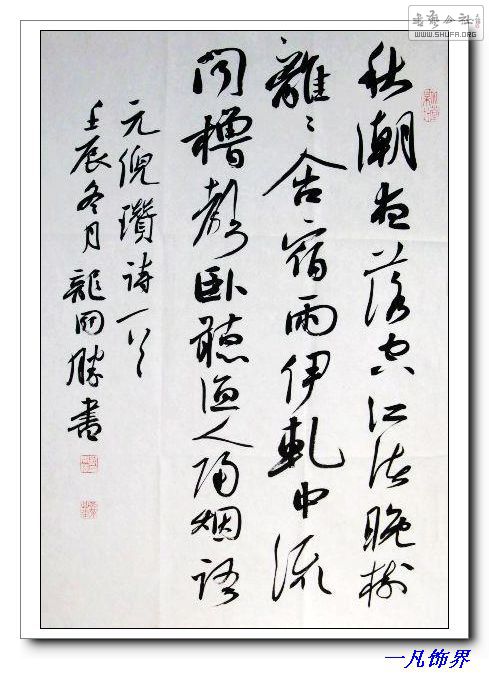 書藝公社
WWW.SHUFA.ORG
秋潮夜落空江渚晚樹
離〻含宿雨伊軋中流
聞櫓聲卧聽漁人隔烟語
元倪瓚詩一首
壬辰冬月龍勝書
一凡饰界